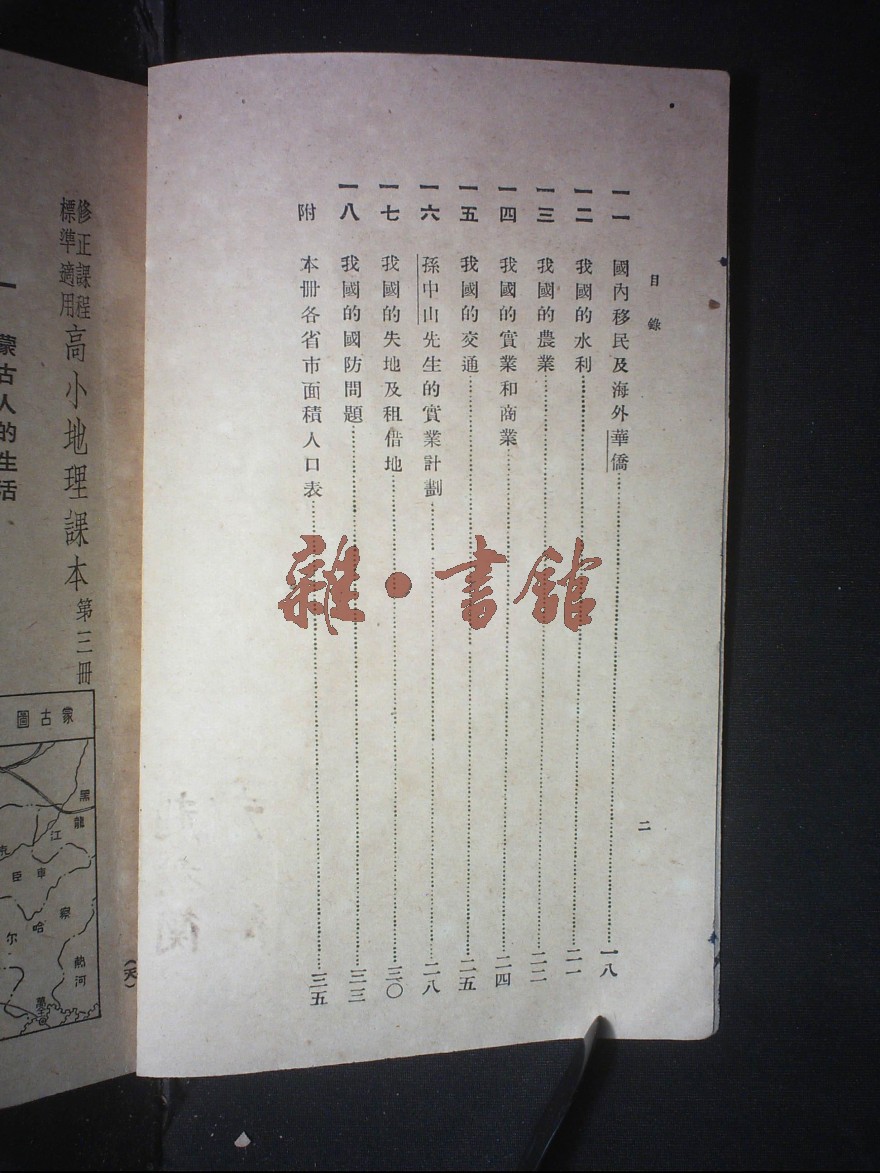 目錄
一一 國內移民及海外華僑……一八
一二 我國的水利……二一
一三 我國的農業……二二
一四 我國的實業和商業……二四
一五 我國的交通……二五
一六 孫中山先生的實業計劃……二八
一七 我國的失地及租借地……三〇
一八 我國的國防問題……三三
附 本冊各省市面積人口表……三五
二
雜·書館
修正課程
標準適用
高小地理課本 第三冊
一 蒙古人的生活
蒙古圖
黑龍江
車臣
察哈爾
熱河
(天)